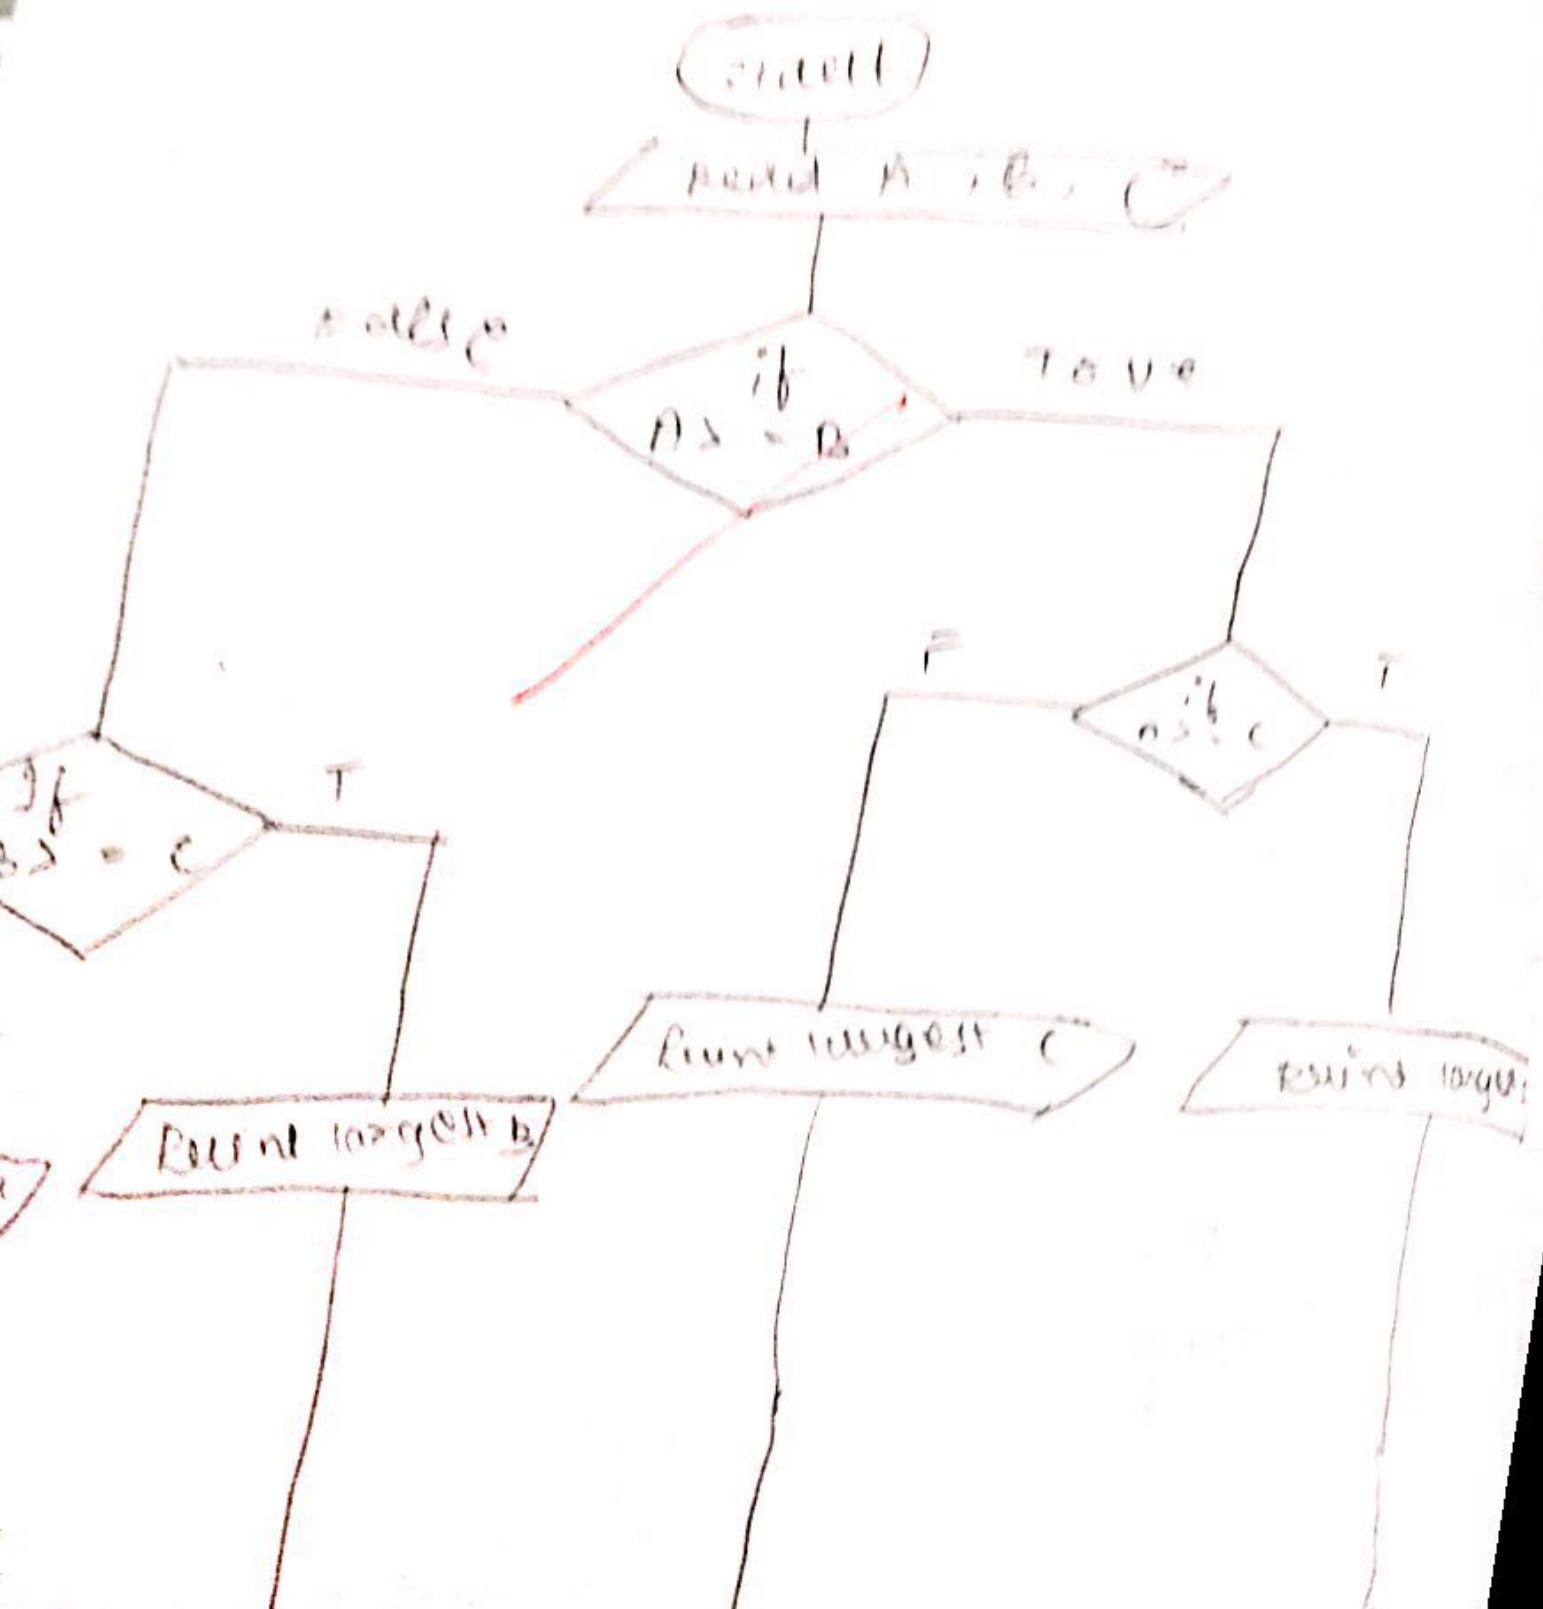 Start
Read A, B, C
False
True
if
A> = B
F
T
if
A> = C
T
If
B> = C
Print largest C
Print large
Print largest B